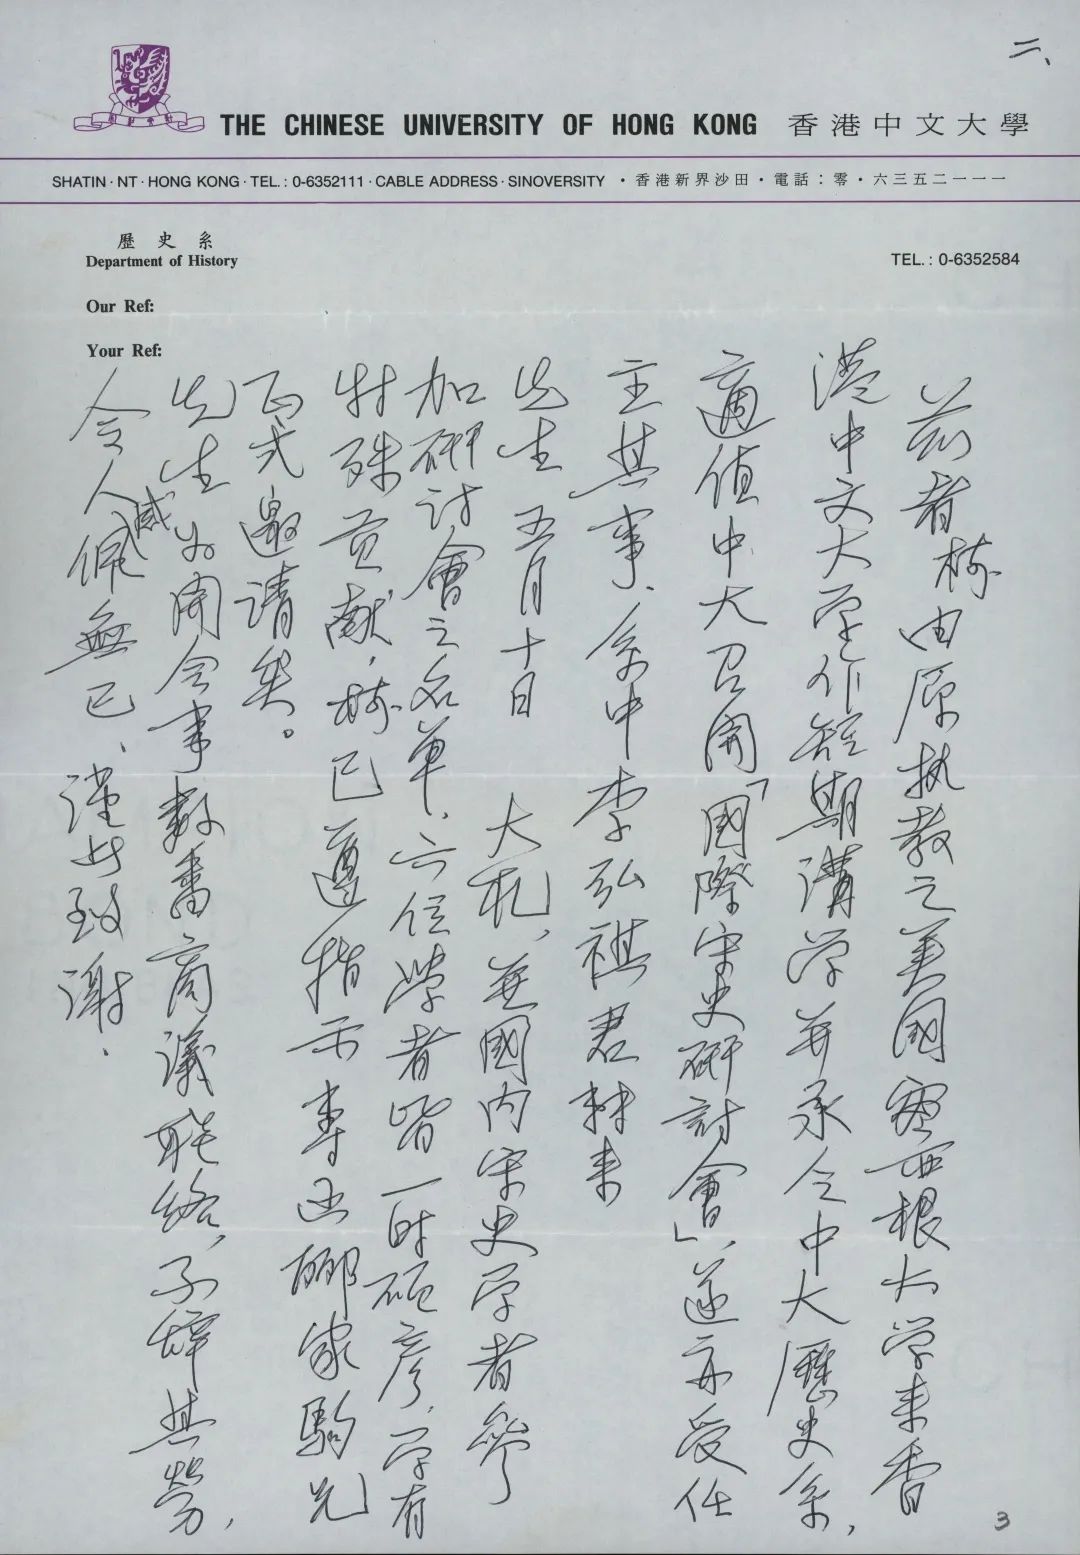 二、
THE CHINESE UNIVERSITY OF HONG KONG 香港中文大學
SHATIN · NT · HONG KONG · TEL.: 0-6352111 · CABLE ADDRESS · SINOVERSITY · 香港新界沙田 · 電話：零 · 六三五二一一一
歷史系
Department of History
TEL.: 0-6352584
Our Ref:
Your Ref:
茲者栘由原执教之美國密西根大学来香
港中文大学作短期講学并承令中大歷史系，
適值中大召開「國際宋史研討會」，遂亦受任
主其事、系中李弘祺君轉来
先生五月十日大札，並國内宋史学者參
加研讨會之名單，六位學者皆一时硕彦，学有
特殊贡献，栘已遵指示专函酈家駒兄
正式邀请矣。
先生为開会事數番商議联络，不辞其勞，
令人感佩無已、谨此致谢．
3